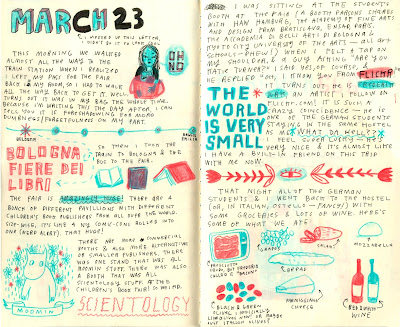 MARCH 23
I MESSED UP THIS LETTER,
I DIDN'T DO IT TO LOOK COOL
THIS MORNING WE WALKED
ALMOST ALL THE WAY TO THE
TRAIN STATION WHEN I REALIZED
I LEFT MY PASS FOR THE FAIR
BACK IN MY ROOM, SO I HAD TO WALK
ALL THE WAY BACK TO GET IT. WELL,
TURNS OUT IT WAS IN MY BAG THE WHOLE TIME.
BECAUSE I'M WRITING THIS THE DAY AFTER, I CAN
TELL YOU IT IS FORESHADOWING FOR MORE
DUMBNESS/FORGETFULNESS ON MY PART.
OH
NO
BOLOGNA
BOLOGNA
FIERE DEI
LIBRI
SO THEN I TOOK THE
TRAIN TO BOLOGNA & THE
BUS TO THE FAIR.
THE FAIR IS HUGE! THERE ARE 4
BUNCH OF DIFFERENT PAVILLIONS WITH DIFFERENT
CHILDREN'S BOOK PUBLISHERS FROM ALL OVER THE WORLD.
SIZE-WISE, IT'S LIKE 4 NYC COMIC-CONS ROLLED INTO
ONE (NERD ALERT). THAT HUGE!
THERE ARE MORE COMMERCIAL
BOOTHS & ALSO MORE ALTERNATIVE
OR SMALLER PUBLISHERS. THERE
WAS ONE STAND THAT WAS ALL
MOOMIN STUFF. THERE WAS ALSO
A BOOTH THAT WAS ALL
SCIENTOLOGY STUFF AT THE
CHILDREN'S BOOK FAIR? UH WEIRD.
MOOMIN
SCIENTOLOGY
I WAS SITTING AT THE STUDENTS
BOOTH AT THE FAIR (A BOOTH PARSONS SHARES
WITH HAW HAMBURG, THE ACADEMY OF FINE ARTS
AND DESIGN FROM BRATISLAVA, ESDAP, PARIS,
THE ACADEMIA DI BELLI ARTI DI BOLOGNA &
KYOTO CITY UNIVERSITY OF THE ARTS... ALL ART
SCHOOLS-PHEW!) WHEN I FELT A TAP ON
MY SHOULDER, & A GUY ASKING "ARE YOU
KATIE TURNER?" I SAID YES, OF COURSE, &
HE REPLIED "OH, I KNOW YOU FROM FLICKR."
THE
WORLD
IS VERY
SMALL!
TURNS OUT HE
AN ARTIST I FOLLOW ON
FLICKR.COM! IT IS SUCH A
CRAZY COINCIDENCE - HE IS
ONE OF THE GERMAN STUDENTS
STAYING IN THE SAME HOSTEL
AS ME. WHAT DA HELL??
I FEEL SUPER LUCKY - HE IS
VERY NICE & IT'S ALMOST LIKE
I HAVE A BUILT-IN FRIEND ON THIS TRIP
WITH ME NOW.
THAT NIGHT ALL OF THE GERMAN
STUDENTS & I WENT BACK TO THE HOSTEL
(OR, IN ITALIAN, OSTELLO - FANCY!) WITH
SOME GROCERIES & LOTS OF WINE. HERE'S
SOME OF WHAT WE ATE:
GRAPES
SALAMI
MOZZARELLA
BREAD
PARMIGIANO
CHEESE
RED
WINE
BLACK & GREEN
OLIVES